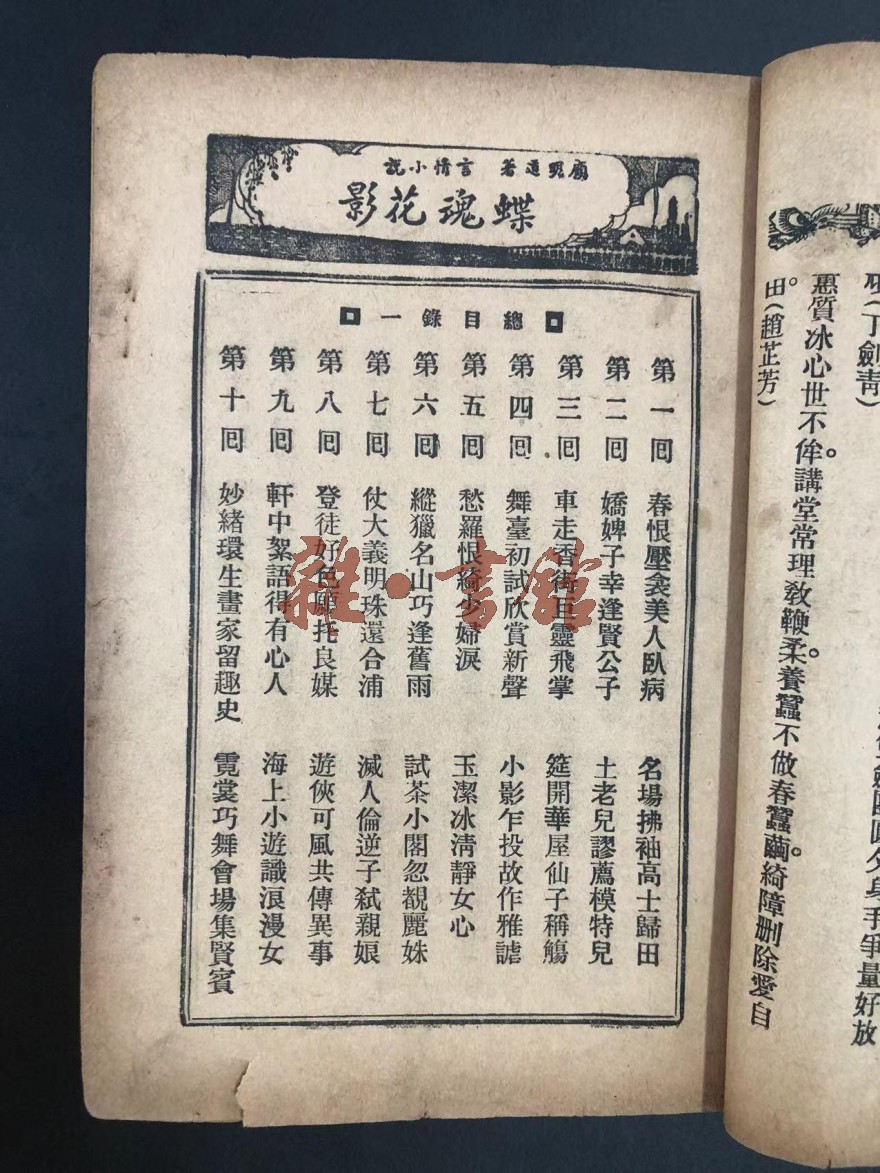 惠質冰心世不侔。講堂常理教鞭柔。養蠶不做春蠶繭。綺障删除愛自
由(趙芷芳)
顧明道著 言情小說
蝶魂花影
總目錄一
第一囘 春恨壓衾美人臥病 名場拂袖高士歸田
第二囘 嬌婢子幸逢賢公子 土老兒謬薦模特兒
第三囘 車走香街巨靈飛掌 筵開華屋仙子稱觴
第四囘 舞臺初試欣賞新聲 小影乍投故作雅謔
第五囘 愁羅恨綺少婦淚 玉潔冰清靜女心
第六囘 縱獵名山巧逢舊雨 試茶小閣忽覩麗姝
第七囘 仗大義明珠還合浦 滅人倫逆子弒親娘
第八囘 登徒好色願托良媒 遊俠可風共傳異事
第九囘 軒中絮語得有心人 海上小遊識浪漫女
第十囘 妙緒環生畫家留趣史 霓裳巧舞會場集賢賓
雜·書館